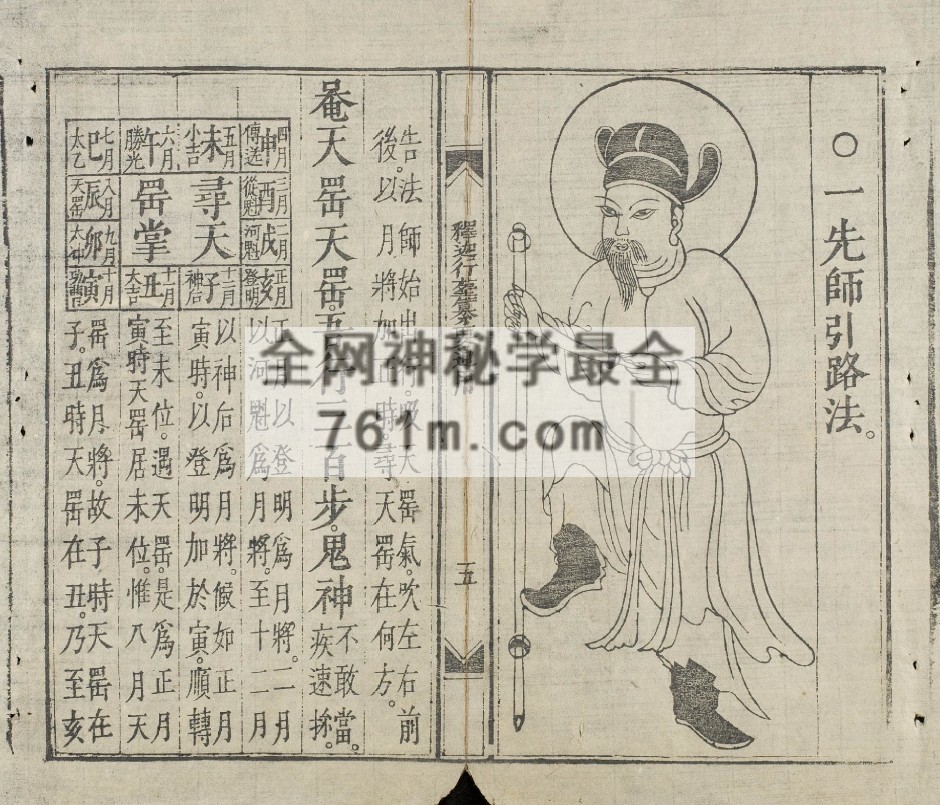 ○一先師引路法。
五
告法師始出行。吸天罡氣。吹左右前
後。以月將加正時。尋天罡在何方。
唵天罡天罡。五行三百步。鬼神
不敢當。
疾速摧。
四月 申 傳送
五月 未 小吉
六月 午 勝光
七月 巳 太乙
三月 酉 從魁
八月 辰 天罡
二月 戌 河魁
九月 卯 太冲
正月 亥 登明
十二月 子 神后
十一月 丑 大吉
十月 寅 功曹
尋天
罡掌
正月以登明爲月將。二月
以河魁爲月將。至十二月
以神后爲月將。候如正月
寅時。以登明加於寅。順轉
至未位。遇天罡。是爲正月
寅時天罡居未位。惟八月天
罡爲月將。故子時天罡在
子。丑時天罡在丑。乃至亥
全网神秘学最全
761m.com